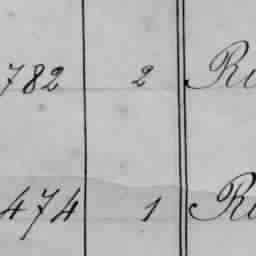 782 2
474 1